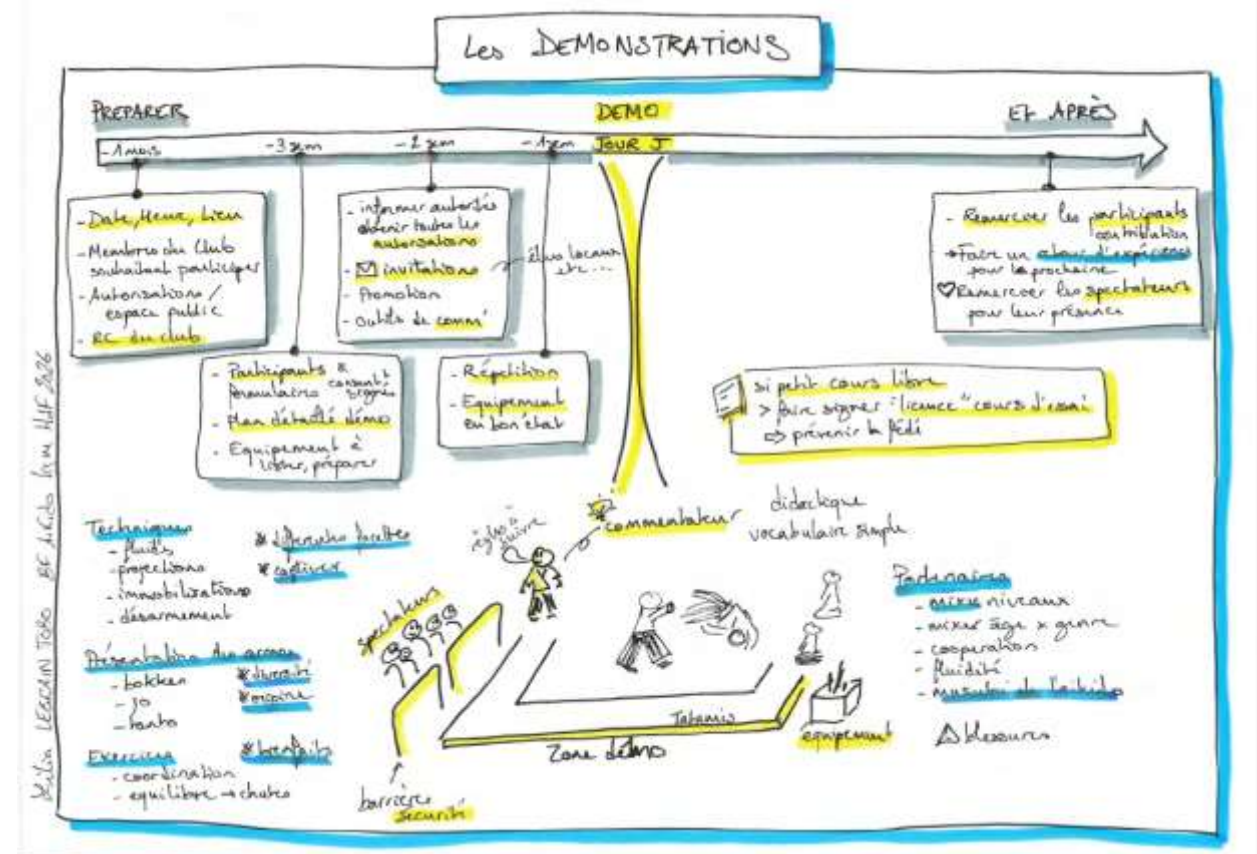 Les DEMONSTRATIONS
PREPARER
DEMO
ET APRÈS
-1 mois
-3 sem
-2 sem
-1 sem
JOUR J
- Date, Heure, Lieu
- Membres du Club
souhaitant participer
- Autorisations /
espace public
- RC du club
- Participants &
formulaires consent.
signés
- Plan détaillé démo
- Equipement à
lister, préparer
- informer autorités
obtenir toutes les
autorisations
- invitations
élus locaux
etc...
- Promotion
- outils de comm'
- Répétition
- Equipement
en bon état
- Remercier les participants
contribution
→ Faire un retour d'expérience
pour la prochaine
Remercier les spectateurs
pour leur présence
si petit cours libre
> faire signer "licence" cours d'essai
⇨ prévenir la fédé
Techniques
- fluids
- projections
- immobilisations
- désarmement
* différentes facettes
* captiver
Présentation des armes
- bokken
- jo
- tanto
* diversité
* origine
Exercices
- coordination
- equilibre → chutes
* bienfaits
règles à
suivre
commentateur
didactique
vocabulaire simple
spectateurs
Tatamis
Zone démo
équipement
barrières
sécurité
Partenaires
- mixer niveaux
- mixer âge x genre
- cooperation
- fluidité
- musubi de l'aikido
blessures
LEGRAIN TORO BF Aikido 2026